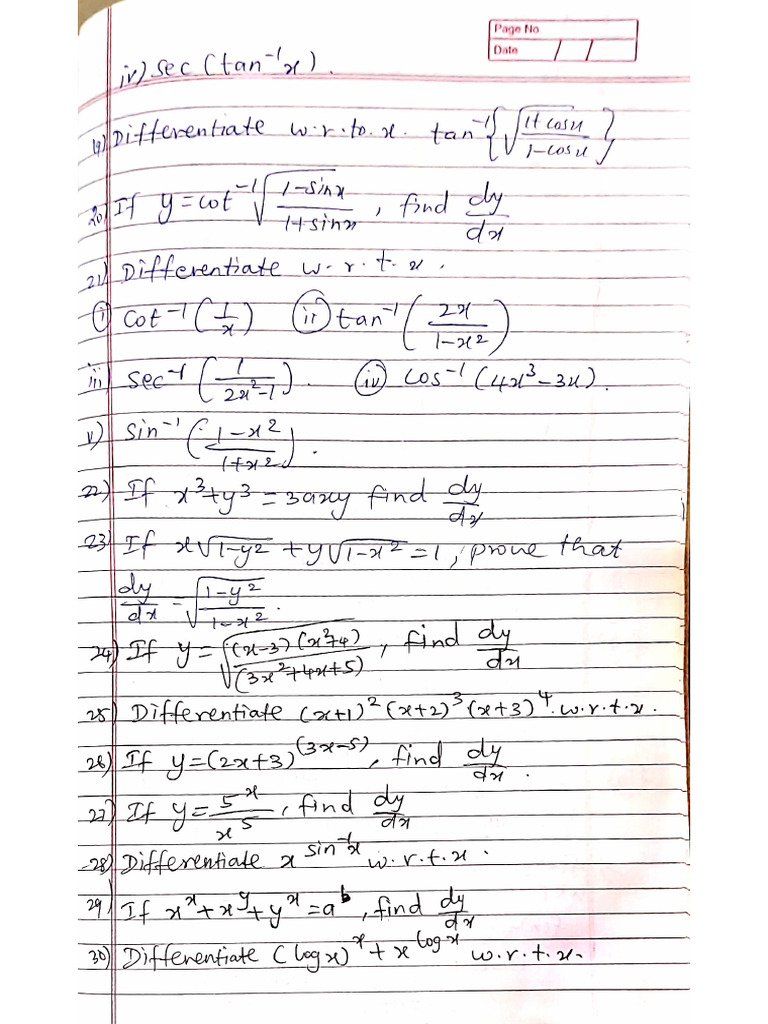 Page No
Date / /
iv) sec (tan⁻¹x).
19) Differentiate w.r.to.x. tan⁻¹{√(1+cosx / 1-cosx)}
20) If y=cot⁻¹√(1-sinx / 1+sinx), find dy/dx
21) Differentiate w.r.t.x.
(i) cot⁻¹(1/x) (ii) tan⁻¹(2x / 1-x²)
iii) sec⁻¹(1 / 2x²-1). (iv) cos⁻¹(4x³-3x).
v) sin⁻¹(1-x² / 1+x²).
22) If x³+y³=3axy find dy/dx
23) If x√1-y² + y√1-x² =1, prove that
dy/dx = √(1-y² / 1-x²).
24) If y=√((x-3)(x²+4) / (3x²+4x+5)), find dy/dx
25) Differentiate (x+1)²(x+2)³(x+3)⁴.w.r.t.x.
26) If y=(2x+3)^(3x-5), find dy/dx.
27) If y=5^x / x⁵, find dy/dx
28) Differentiate x^sin⁻¹x w.r.t.x.
29) If x^x+x^y+y^x=a^b, find dy/dx
30) Differentiate (logx)^x + x^logx w.r.t.x.